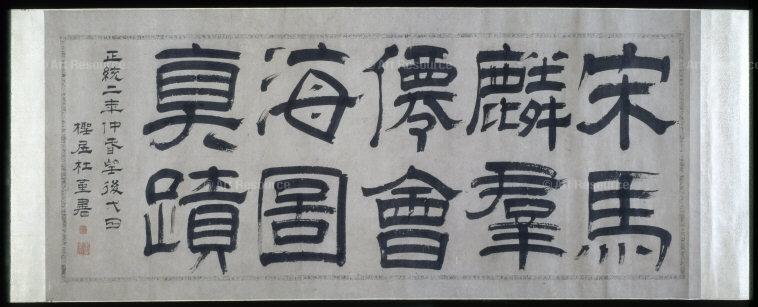 宋馬
麟羣
僊會
海圖
真蹟
正統二年仲春望後日
檉居杜堇書
© Art Resource
© Art Resource
© Art Resource
© Art Resource
© Art Resource
© Art Resource